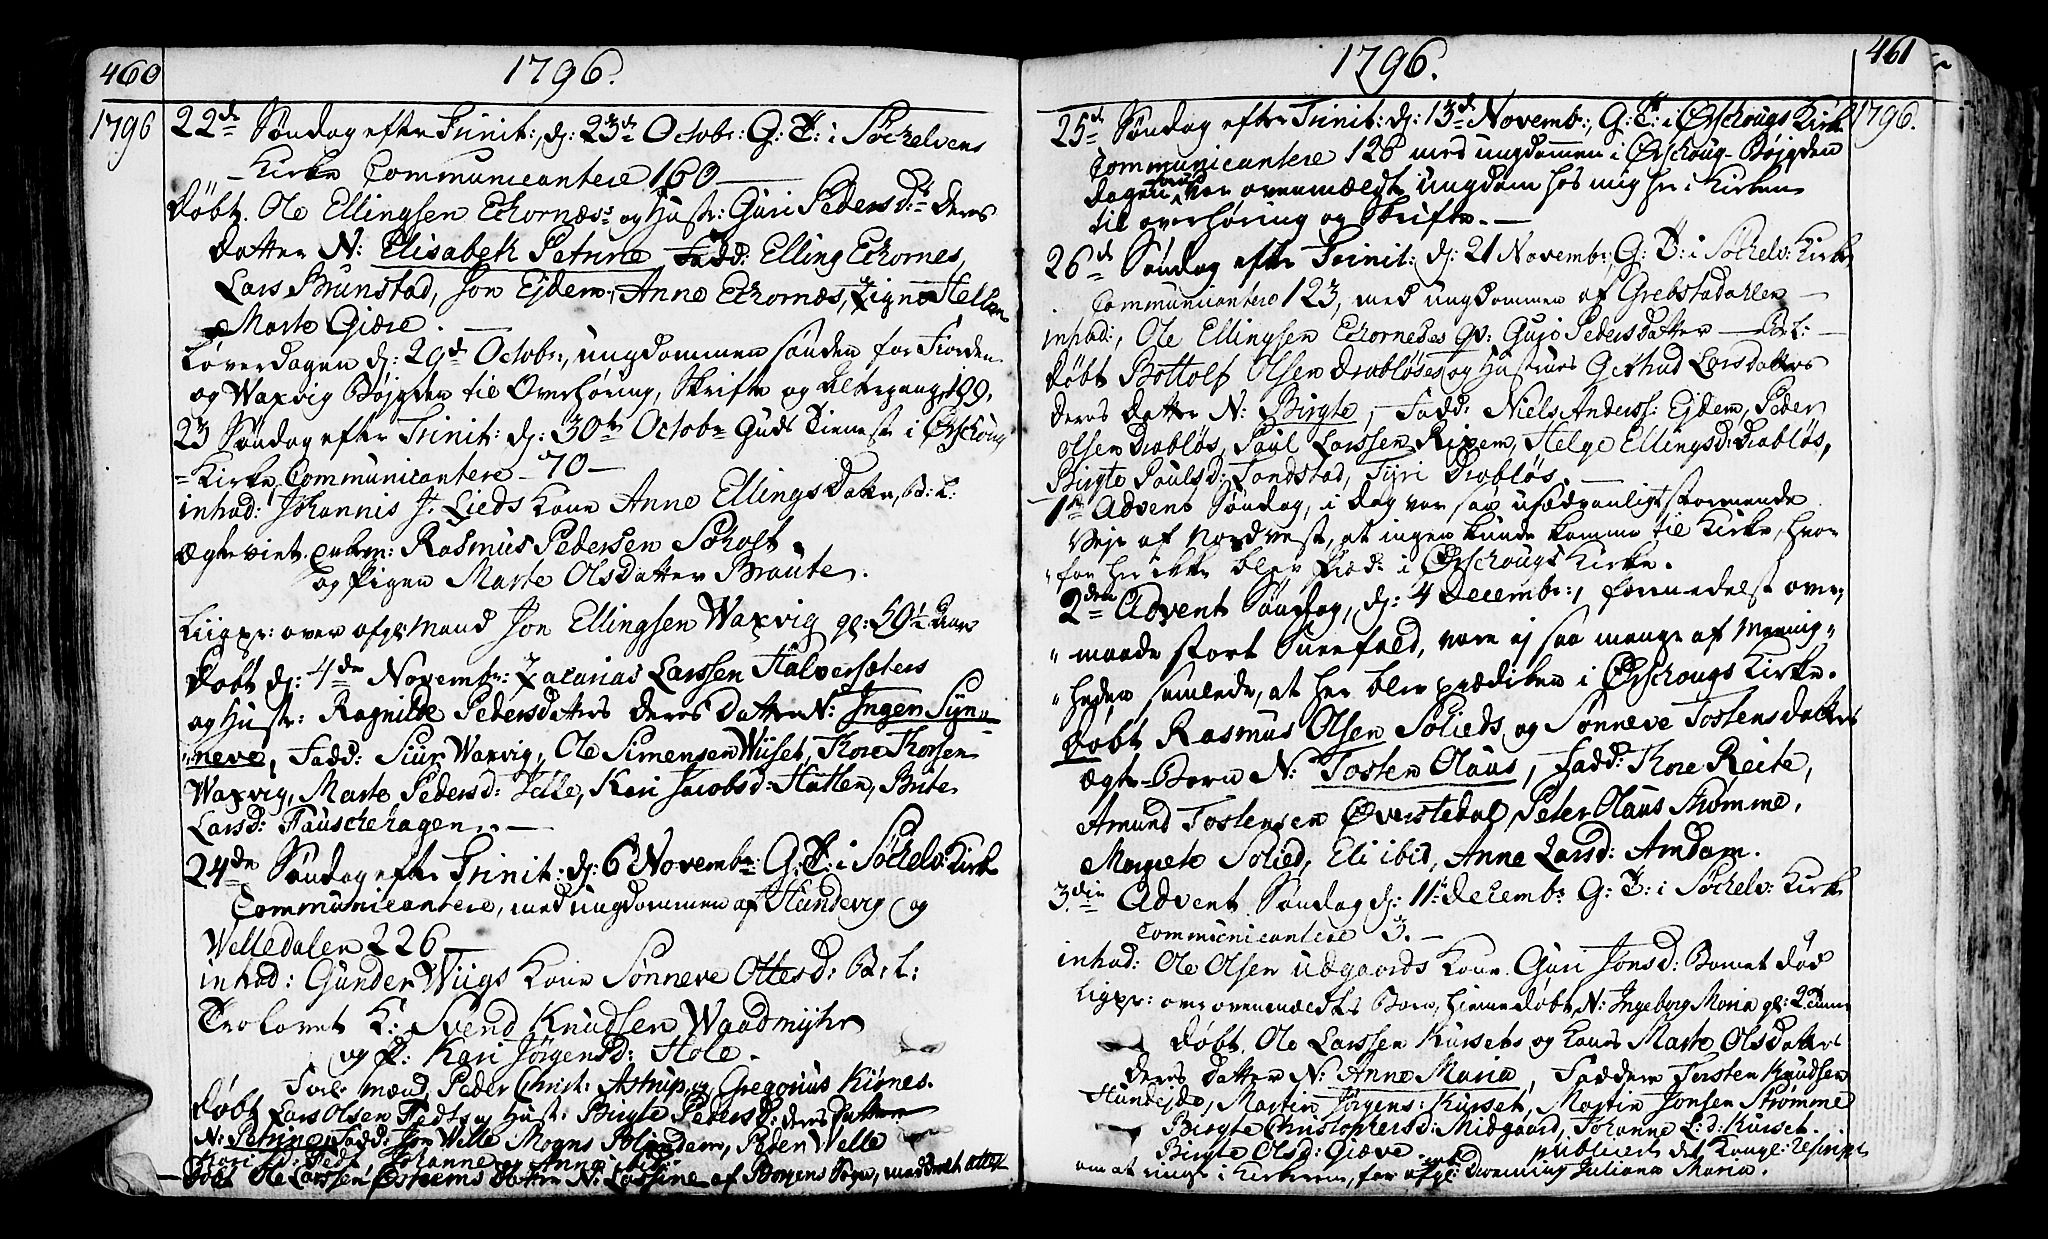 460
1796.
1796
22de Søndag efter Trinit:, dj: 23de Octobr: G: T: i Søchelvens
Kirke Communicantere 160
døbt. Ole Ellingsen Echornæs: og Hustr: Guri Pedersd:s deres
datter N: Elisabeth Petrine Fadd: Elling Echornes,
Lars Brunstad, Jon Ejdem, Anne Echornæs, Zigne Hellen
Marte Giære.
Løverdagen dj: 29de Octobr:, ungdommen sønden for Fiorden
og Waxvig Bøjgden til Overhøring, Skrifte og Altergang, 199.
23 Søndag efter Trinit: dj: 30te Octobr Guds Tieneste i Ørschoug
Kirke, Communicantere 70
inhad: Johannis J. Lieds Kone Anne Ellings Datter, B: L:
Ægteviet. Enkem: Rasmus Pedersen Scholt
og Pigen Marte Olsdatter Braute.
Liigpr: over afg: Mand Jon Ellingsen Waxvig gl: 59½ Aar
døbt dj: 4de Novembr: Zacarias Larssen Halvorsæters
og Hustr: Ragnilde Pedersdatters deres Datter N: Ingen Syn-
neve, Fadd: Siur Waxvig, Ole Simensen Wiset, Thore Thorsen
Waxvig, Marte Pedersd: Velle, Kari Jacobsd: Hatlen, Brite
Larsd: Fauschehagen.
24de Søndag efter Trinit: dj: 6 Novembr: G: T: i Søchelv: Kirke
Communicantere, med ungdommen af Hundevig og
Velledalen 226
inhad: Gunder Wiigs Kone Sønneve Ottesd: B: L:
Trolovet K: Svend Knudsen Waadmyhr
og P: Kari Jørgensd: Hole.
Forl: mænd, Peder Christ: Astrup og Gregorius Kiørnes.
døbt Lars Olsen Fedts og Hustr: Birgte Pedersd: deres datter
N: Petrine, Fadd: Jon Velle Mogns Blindem, Peder Velle
Fedt Johanne Anne ibid:
døbt Ole Larssen datter N: Lassine af Borgens Sogn, med attest
461
1796.
1796.
25de Søndag efter Trinit: dj: 13de Novembr:, G: T: i Ørschougs Kirk
Communicantere 128 med ungdommen i Ørschoug-Bøjgden
Dagen forud var ovenmeldte ungdom hos mig her i Kirken
til overhøring og Skrifte.
26de Søndag efter Trinit: dj: 21 Novembr:, G: T: i Søchelv: Kirke
Communicantere 123, med ungdommen af Grebstadahlen
inhad:, Ole Ellingsen Echorneses Qv: Gujo Pedersdatter B: L:
døbt Bottolf Olsen Drabløses og Hustrues Gertrud Larsdatters
deres datter N: Birgte, Fadd: Niels Anderss: Ejdem, Peder
Olsen Drabløs, Paul Larssen Rixem, Helge Ellingsd: Drabløs,
Birgte Paulsd: Landstad, Tyri Drabløs.
1te Advent Søndag, i dag var saa usædvanligt stormende
Vejr af Nordvest, at ingen kunde komme til Kirke, hvor
for her ikke blev Præd: i Ørschougs Kirke.
2den Advent Søndag, dj: 4 Decembr:, formedelst over-
maade stort Sneefald, vare ej saa mange af Menig-
heden samlede, at her blev prædiken i Ørschougs Kirke.
døbt Rasmus Olsen Solieds og Sønneve Tostensdatters
ægte-Barn N: Tosten Olaus, Fadd: Thore Reite,
Amund Tostensen Øverstedal, Peter Olaus Strømme,
Margrete Solied, Eli ibid, Anne Larsd: Amdam.
3die Advent Søndag dj: 11te Decembr G: T: i Søchelv: Kirke
Communicantere 3.
inhad: Ole Olsen Udgaards Kone Guri Jonsd: Barnet død
Ligpr: over ovenmeldtes Barn, hjemmedøbt N: Ingeborg Maria gl:
døbt. Ole Larssen Kursets og Kones Marte Olsdatters
deres datter N: Anne Maria, Faddere Torsten Knudsen
Hundejde, Martin Jørgens: Kurset, Martin Jonsen Strømme
Birgte Christophersd: Midgaard, Johanne L:d: Kurset.
Birgte Olsd: Giæve. publicert det Kongl: Rescript
om at ringe i Kirkerne, for afg: Dronning Juliana Maria.